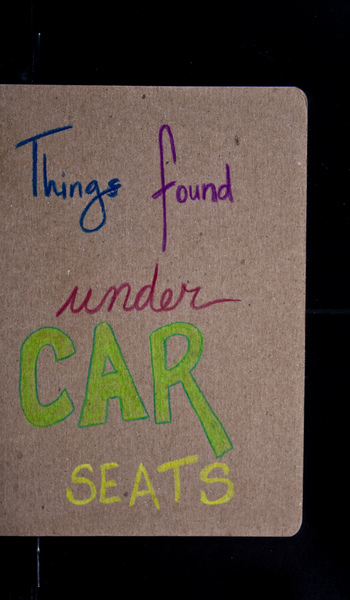 Things found
under
CAR
SEATS